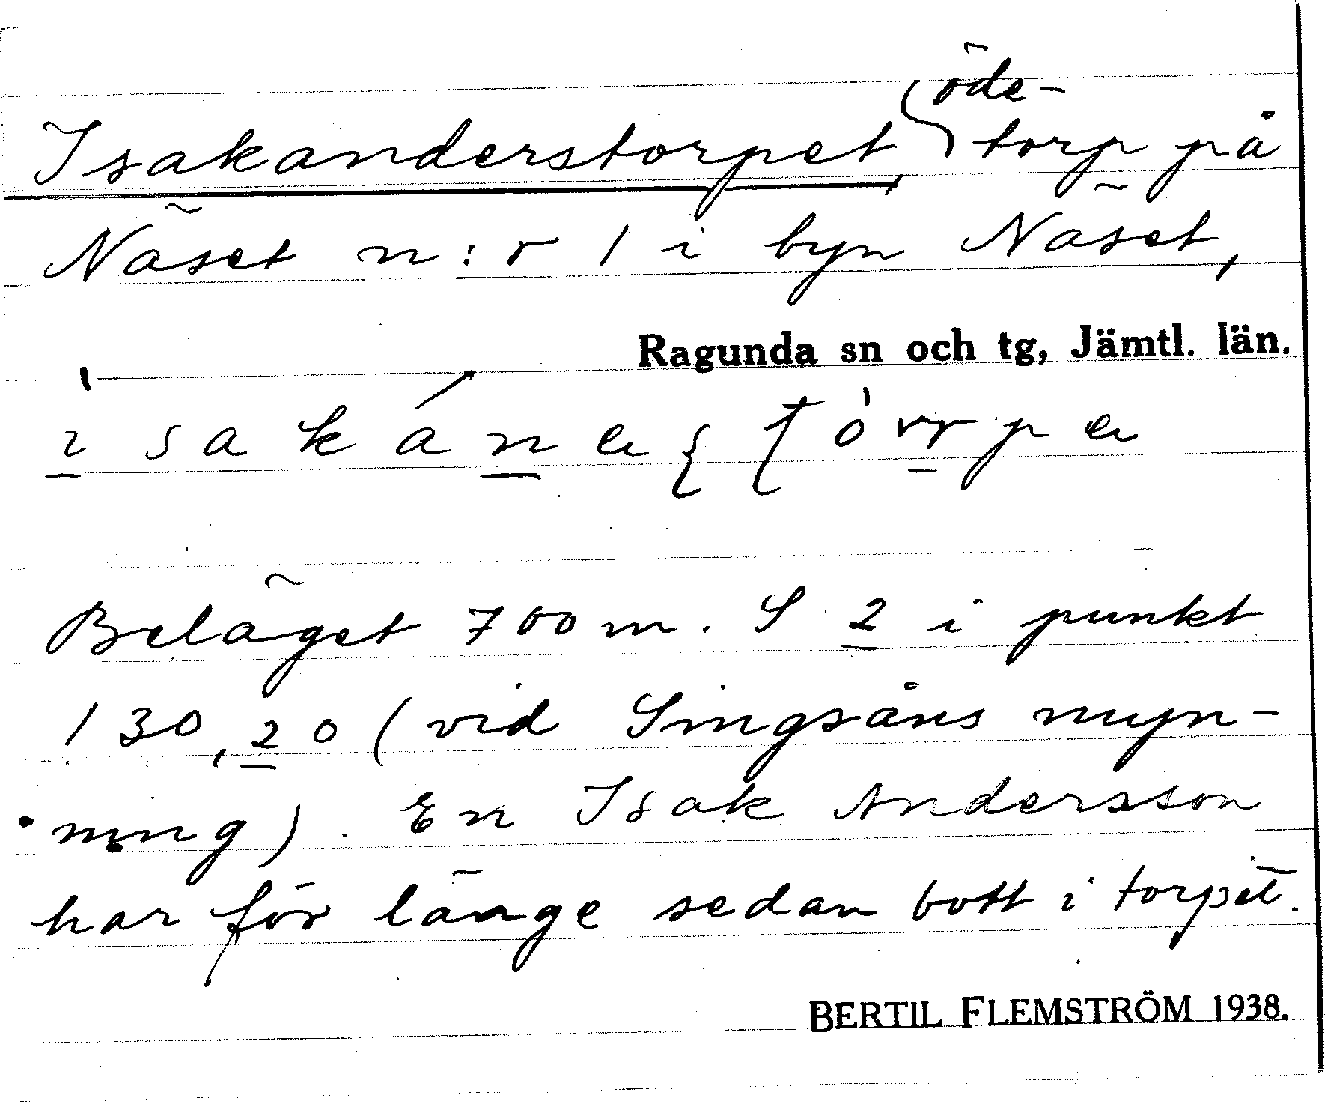 Isakanderstorpet, öde-
torp på
Näset n:r 1 i byn Näset,
Ragunda sn och tg, Jämtl. län.
Beläget 700 m. S 2 i punkt
130,20 (vid Singsåns myn-
ning). En Isak Andersson
har för länge sedan bott i torpet.
BERTIL FLEMSTRÖM 1938.